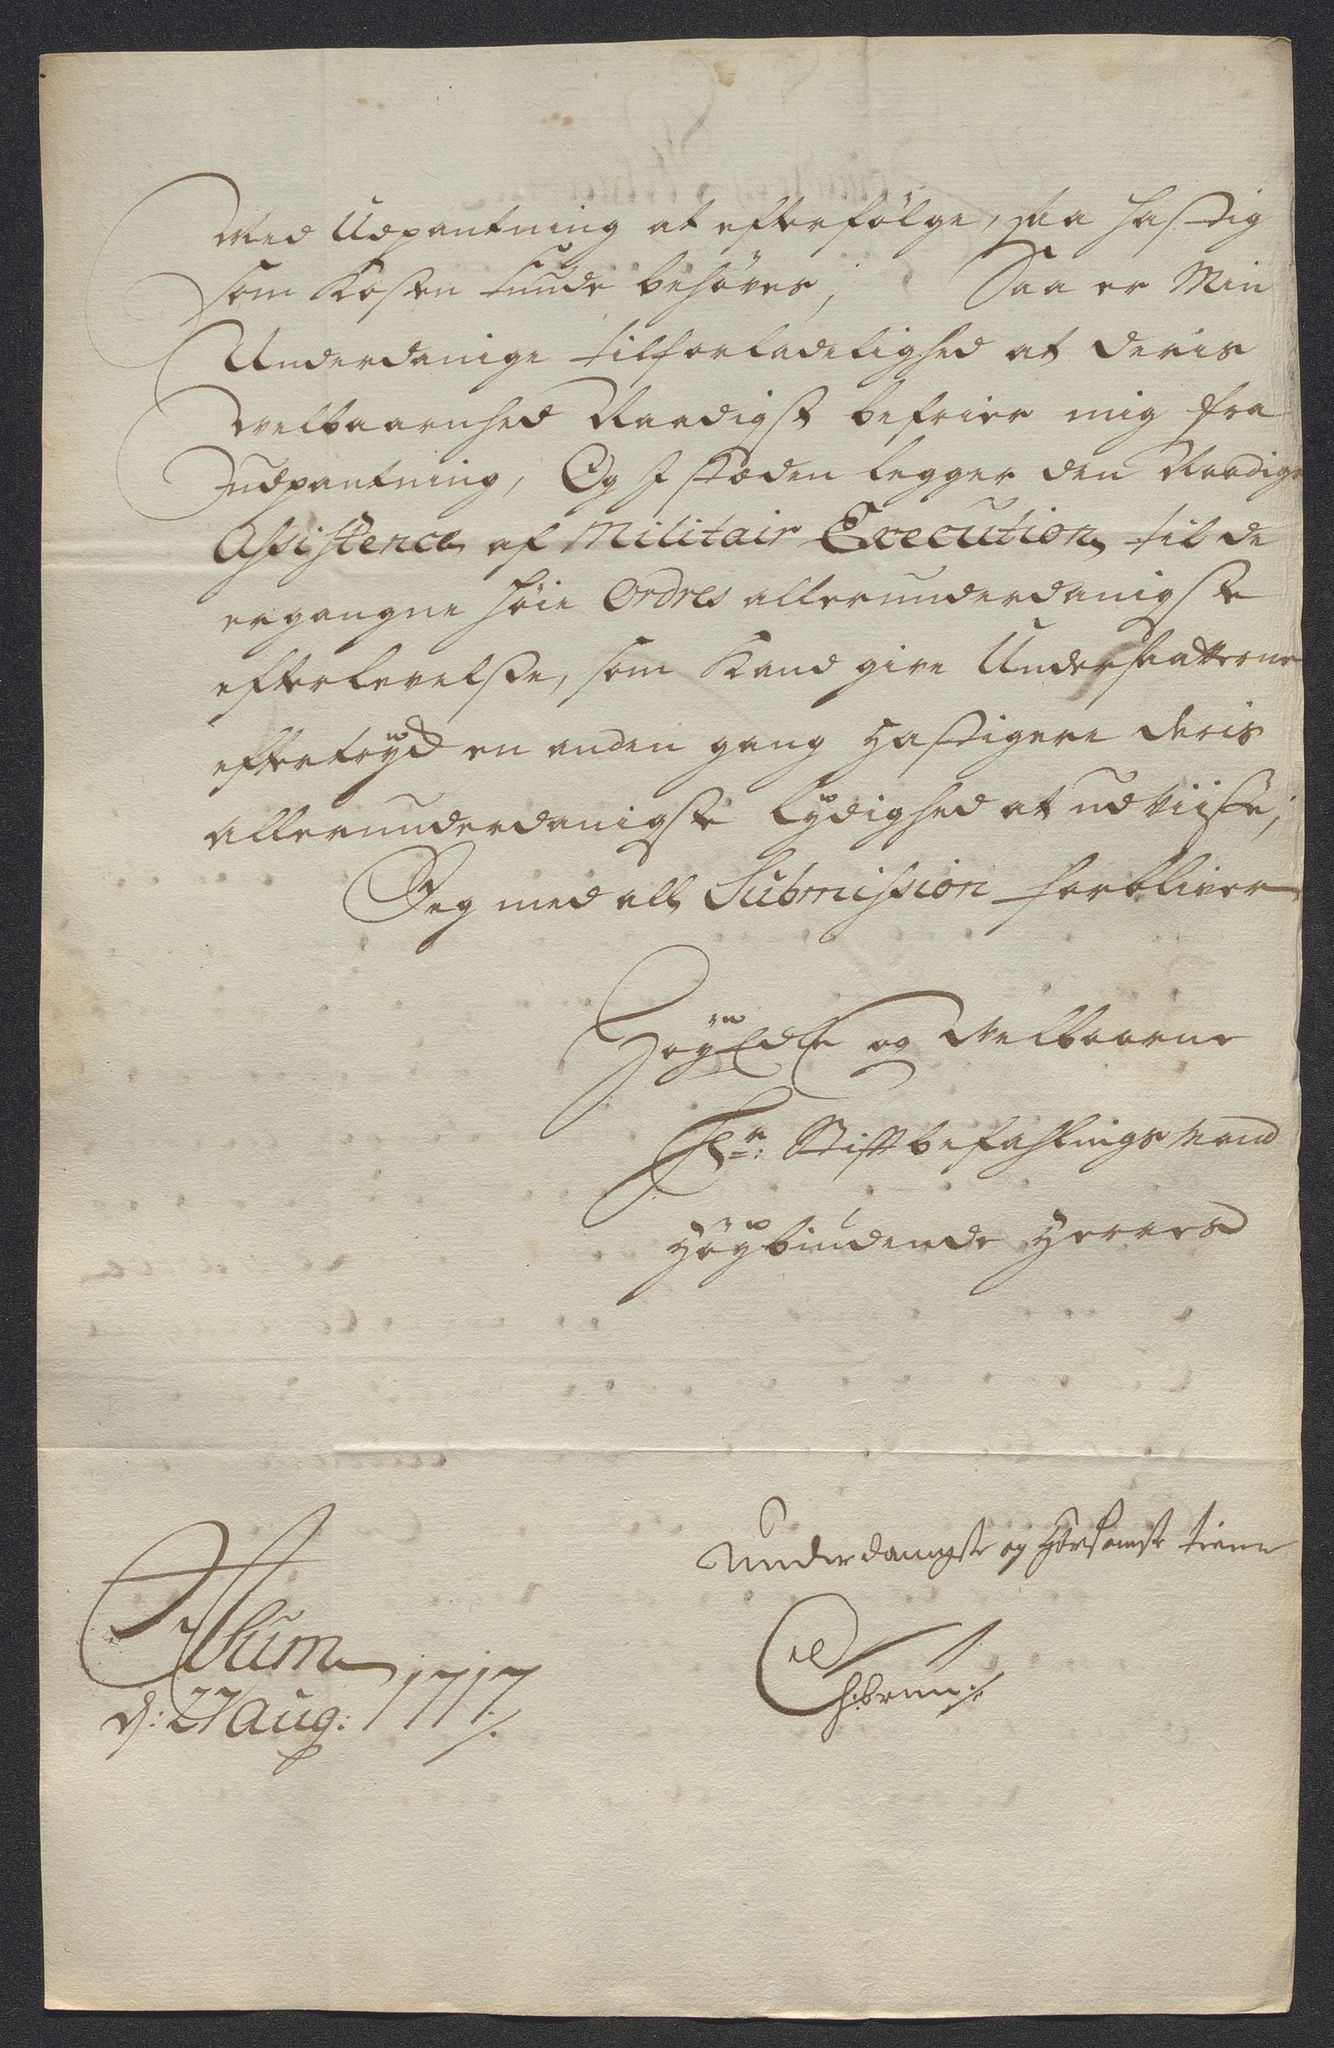 Med Udpantning at efterfølge, saa hastig
som Kosten kunde behøves, Saa er Min
Underdanige tilforladelighed at deris
Welbaarnhed Naadigst befrier mig fra
Udpantning, Og I stæden legger den Naadige
Assistence af Militair Execution til de
ergangne høie Ordres allerunderdanigste
efterlevelse, som Kand give Undersaatterne
eftertryk en anden gang Hastigere deris
allerunderdanigste Lydighed at udviise,
Jeg med all Submission forbliver
HøyEdle og Welbaarne
Hr: Stiftbefahlings Mand
Høybiudende Herres
Underdanigste og Hørsomste tiener
d: 27 Aug: 1717/.